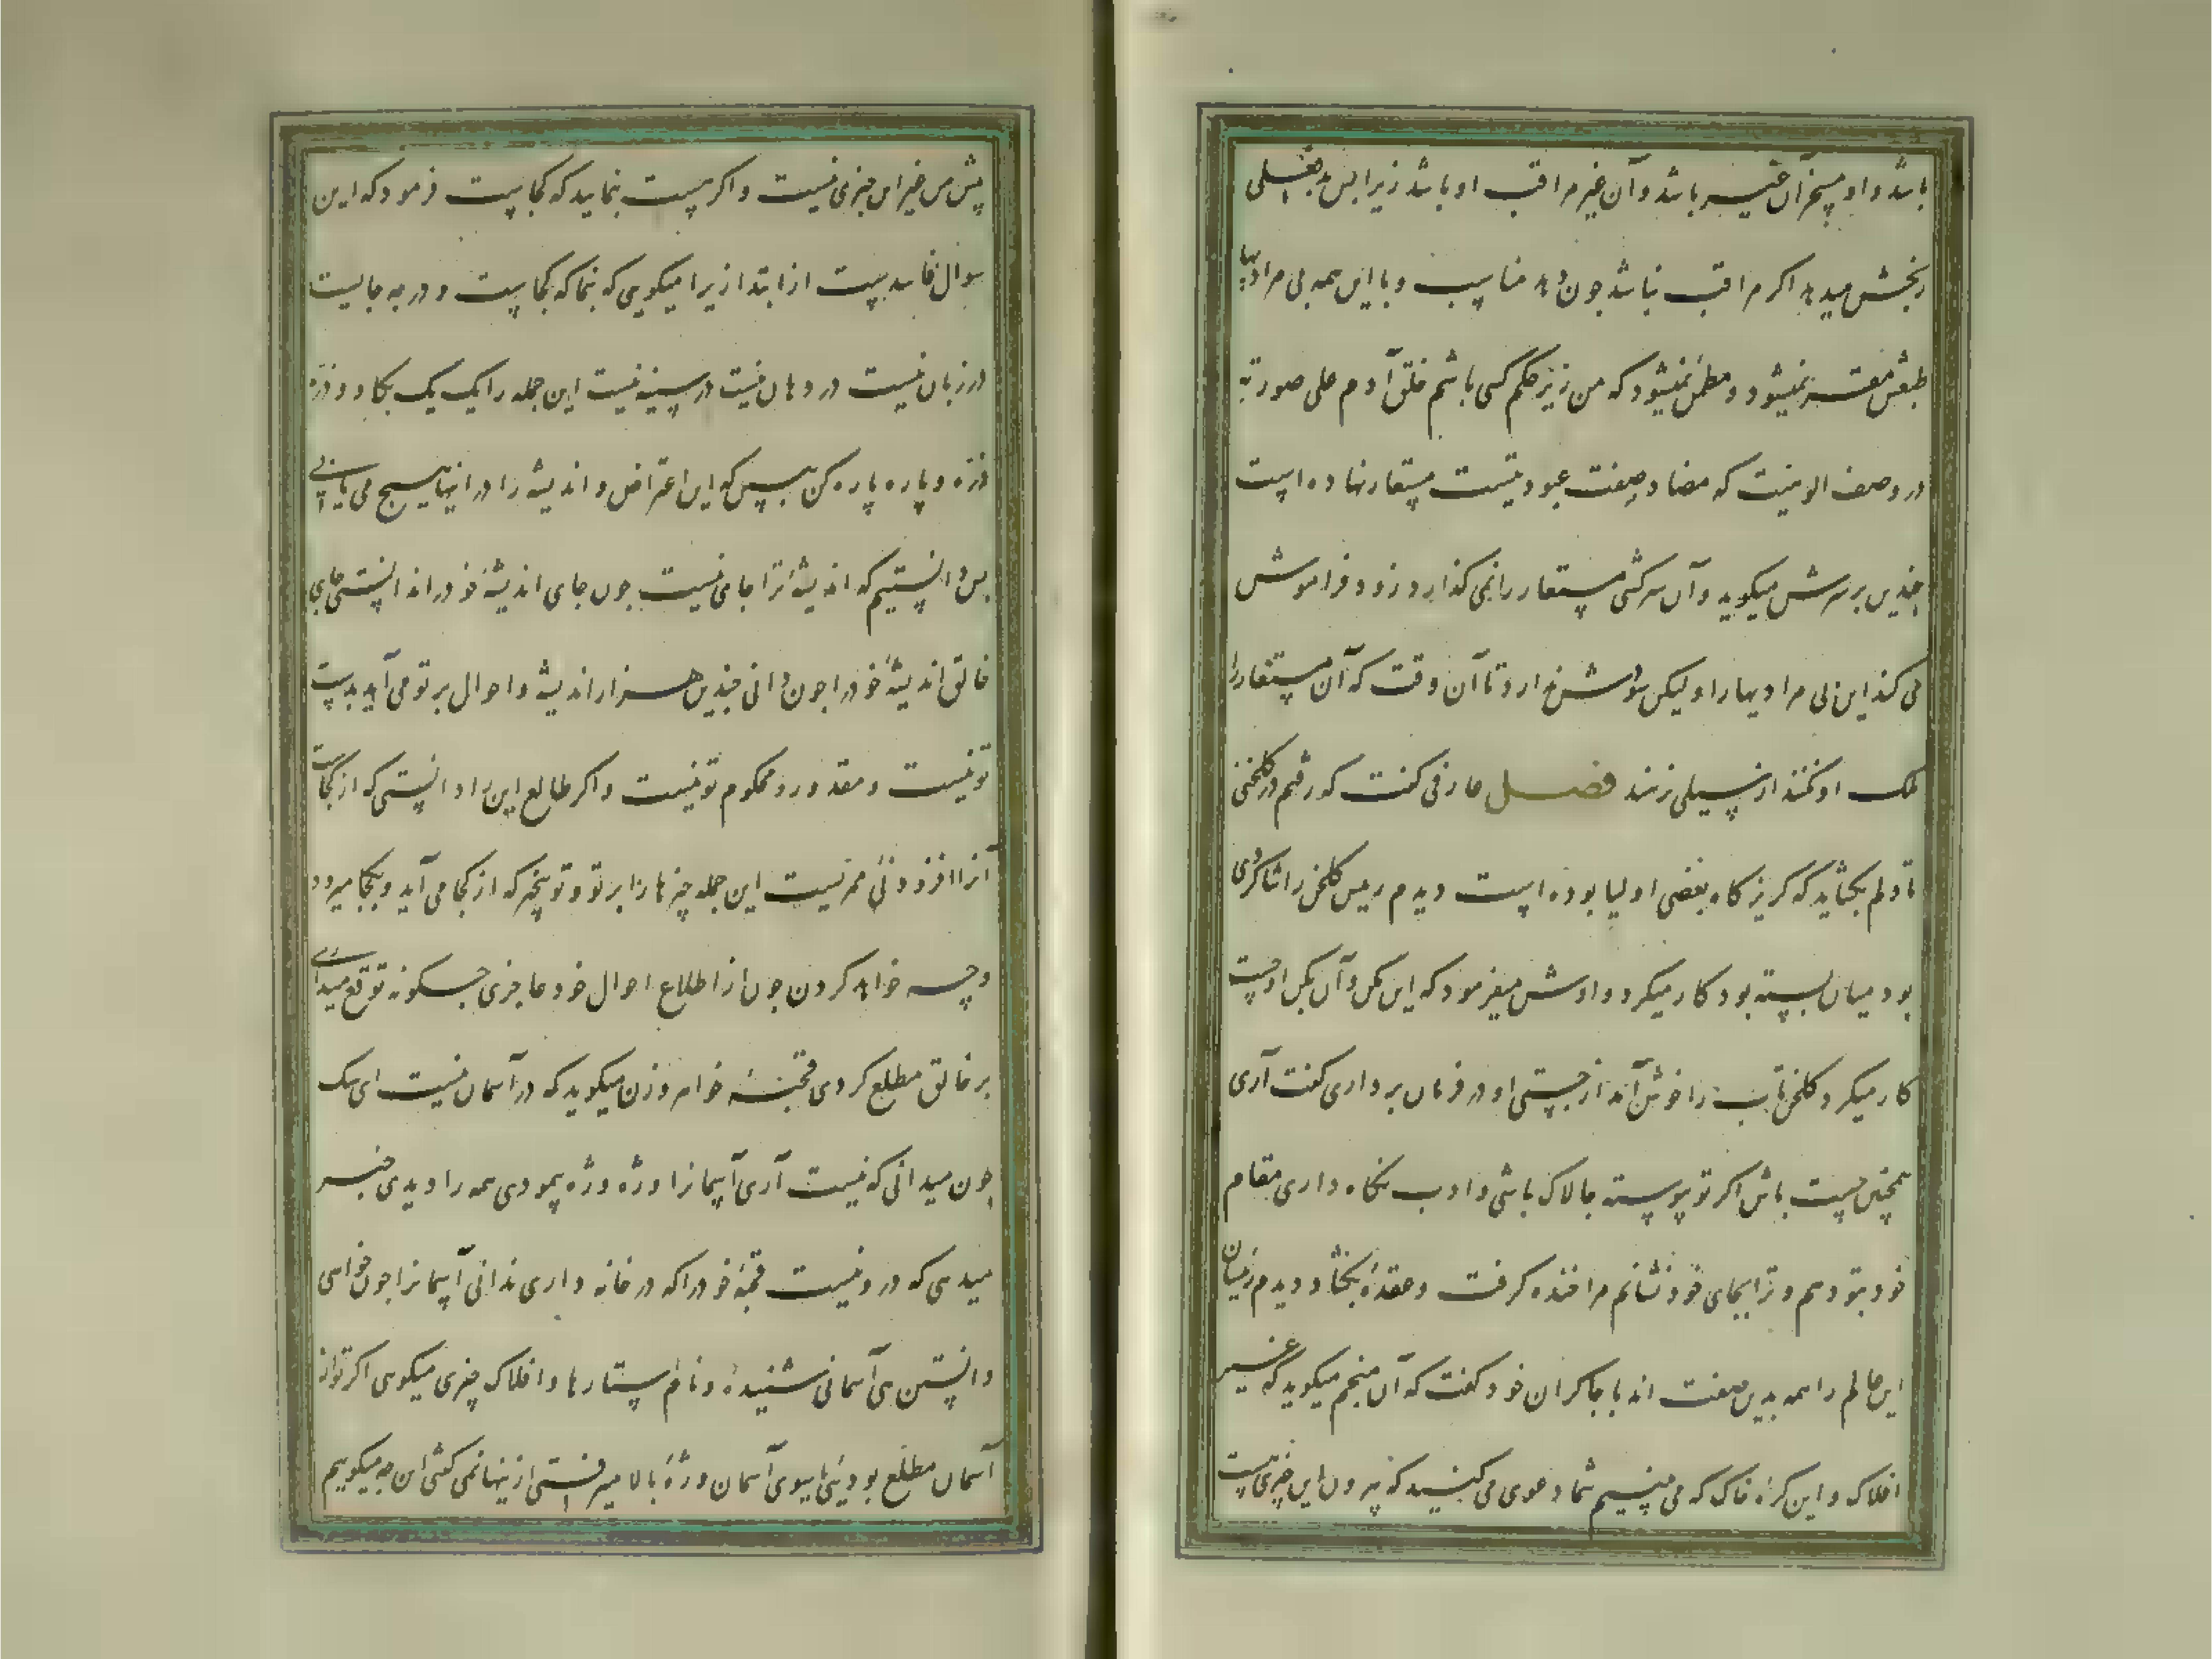 باشد و او مسخر آن غیر باشد و آن غیر مراقب او باشد زیرا بس بد فعلی
رنجش میدهد اگر مراقب نباشد چون دهد مناسب و با این همه بی مرادیها
طبعش مقر نمیشود و مطمئن نمیشود که من زیر حکم کسی باشم خلق آدم علی صورته
در وصف الوهیت که مضاد صفت عبودیتست مستعار نهاده است
چندین بر سرش میکوید و آن سرکشی مستعار را نمی گذارد زود فراموش
می کند این بی مرادیها را ولیکن سودش ندارد تا آن وقت که آن مستعار را
ملک او نکنند از سیلی نرهد فصل عارفی گفت که رفتم در گلخنی
تا دلم بگشاید که گریز گاه بعضی اولیا بوده است دیدم رئیس گلخن را شاگردی
بود میان بسته بود کار میکرد و اوش میفرمود که این بکن و آن بکن او چست
کار میکرد گلخن تاب را خوش آمد از چستی او در فرمان برداری گفت آری
همچنین چست باش اگر تو پیوسته چالاک باشی و ادب نگاه داری مقام
خود بتو دهم و ترا بجای خود نشانم مرا خنده گرفت و عقدهٔ بگشاد دیدم رئیسان
این عالم را همه بدین صفت اند با چاکران خود گفت که آن منجم میگوید که غیر
افلاک و این کرهٔ خاک که می بینیم شما دعوی می کنید که بیرون این چیزی هست
پیش من غیر این چیزی نیست و اگر هست بنمایید که کجاست فرمود که این
سوال فاسدست از ابتدا زیرا میگویی که بنما که کجاست و در چه جایست
در زبان نیست در دهان نیست در سینه نیست این جمله را یک یک بکاو و ذره
ذره و پاره پاره کن ببین که این اعتراض و اندیشه را در اینها هیچ می یابی
پس دانستیم که اندیشهٔ ترا جای نیست چون جای اندیشهٔ خود را ندانستی جای
خالق اندیشهٔ خود را چون دانی چندین هزار اندیشه و احوال بر تو می آید بدست
تو نیست و مقدور و محکوم تو نیست و اگر طالع این را دانستی که از کجاست
آنرا افزودنی ممر نیست این جمله چیزها را بر تو و تو بیخبر که از کجا می آید و بکجا میرود
و چه خواهد کردن چون از اطلاع احوال خود عاجزی چگونه توقع میداری
بر خالق مطلع گردی قحبه خواهر و زن میگوید که در آسمان نیست ای سگ
چون میدانی که نیست آری آسمانرا وژه وژه پیمودی همه را دیدی خبر
میدهی که درو نیست قحبهٔ خود را که در خانه داری ندانی آسمانرا چون خواهی
دانستن هی آسمانی شنیدهٔ و نام ستارها و افلاک چیزی میگویی اگر تو از
آسمان مطلع بودیی یا سوی آسمان وژهٔ بالا میرفتی ازینها نمی گفتی این چه میگوییم